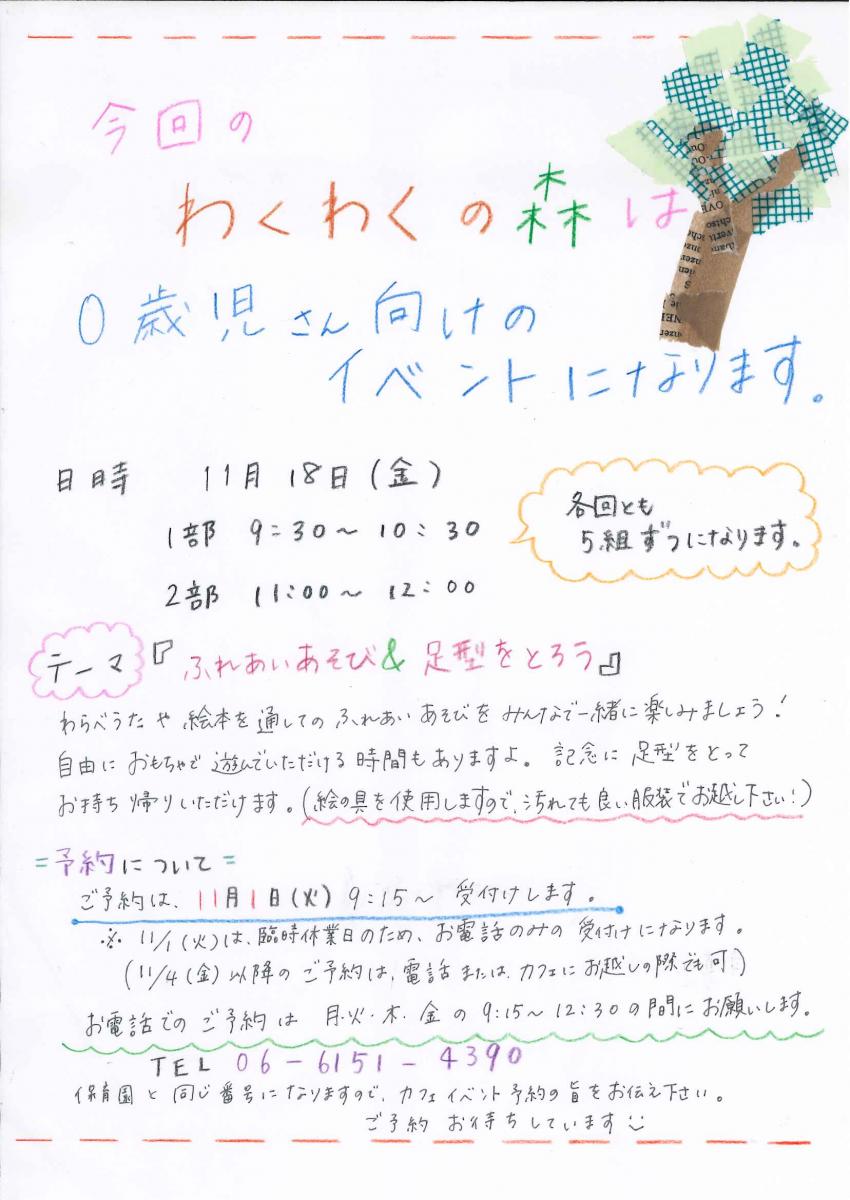 今回の
わくわくの森は
0歳児さん向けの
イベントになります。
日時 11月18日(金)
1部 9:30〜10:30
各回とも
5組ずつになります。
2部 11:00〜12:00
テーマ『ふれあいあそび&足型をとろう』
わらべうたや絵本を通してのふれあいあそびをみんなで一緒に楽しみましょう!
自由におもちゃで遊んでいただける時間もありますよ。記念に足型をとって
お持ち帰りいただけます。(絵の具を使用しますので、汚れても良い服装でお越し下さい!)
=予約について=
ご予約は、11月1日(火)9:15〜受付けします。
※11/1(火)は、臨時休業日のため、お電話のみの受付けになります。
(11/4(金)以降のご予約は、電話または、カフェにお越しの際でも可)
お電話でのご予約は月・火・木・金の9:15〜12:30の間にお願いします。
TEL 06-6151-4390
保育園と同じ番号になりますので、カフェイベント予約の旨をお伝え下さい。
ご予約お待ちしています